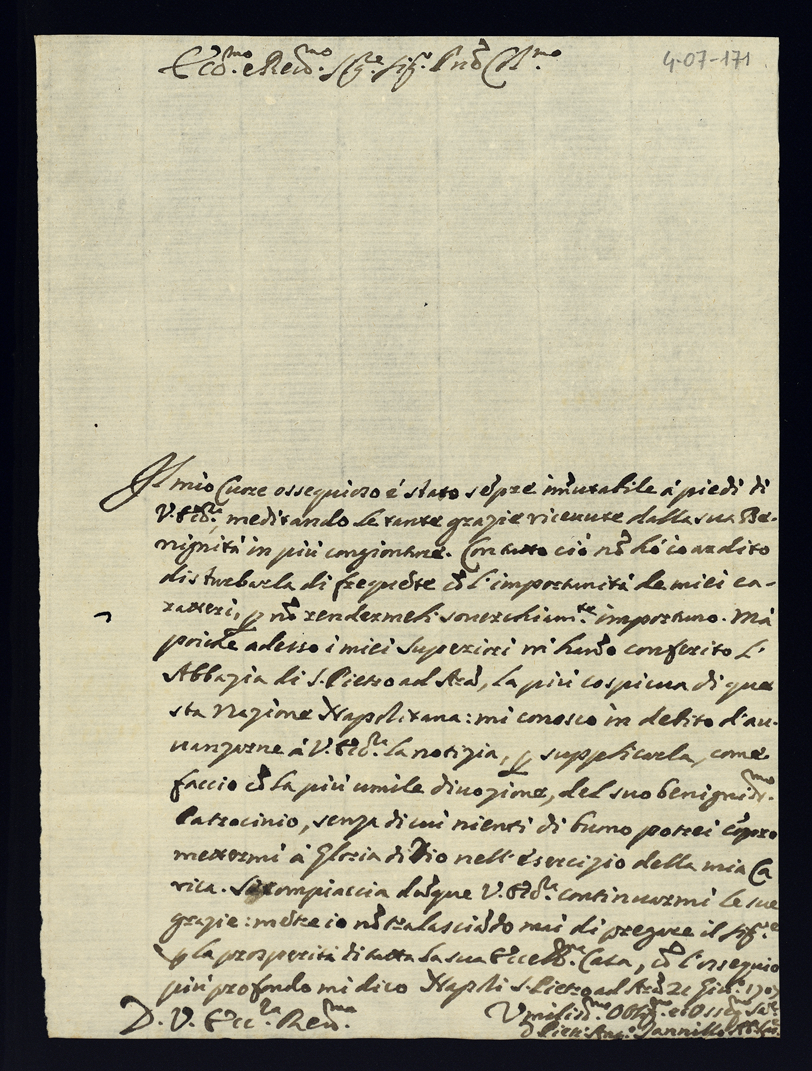 Ecc̃.mo e Reṽ.mo Sig.re Sig.r P̃rone Col.mo
4-07-171
Il mio Cuore ossequioso é stato sẽpre im̃utabile á piedi di
V. Ecc̃.a, meditando le tante grazie riceuute dalla sua Be-
nignitá in piú congionture. Con tutto ció nõ hó io ardito
disturbarla di frequẽte cõ l'importunitá de miei ca-
ratteri, p nõ rendermeli souerchiam.te importuno. Má
poiche adesso i miei Superiori mi hanõ conferito l'
Abbazia di S. Pietro ad Arã, la piú cospicua di que
sta Nazione Napolitana: mi conosco in debito d'au-
uanzarne á V. Ecc̃.a la notizia, p supplicarla, come
faccio cõ la piú umile diuozione, del suo benigniss.mo
Patrocinio, senza di cui nienti di buono potrei cõpro
mettermi á Gloria di Dio nell'esercizio della mia Ca
rica. Si compiaccia dũque V. Ecc̃.a continuarmi le sue
grazie: mẽtre io nõ tralasciãdo mai di pregare il Sig.re
p la prosperitá di tutta la sua Eccell.ma Casa, cõ l'ossequio
piú profondo mi dico Napoli S. Pietro ad Arã 21 Giu.º 1707
D. V. Ecc.za Reũ.ma
Vmiliss.mo Obbl.mo ed Osseq.mo Se.re
D. Pietr' Ant.º Iannillo